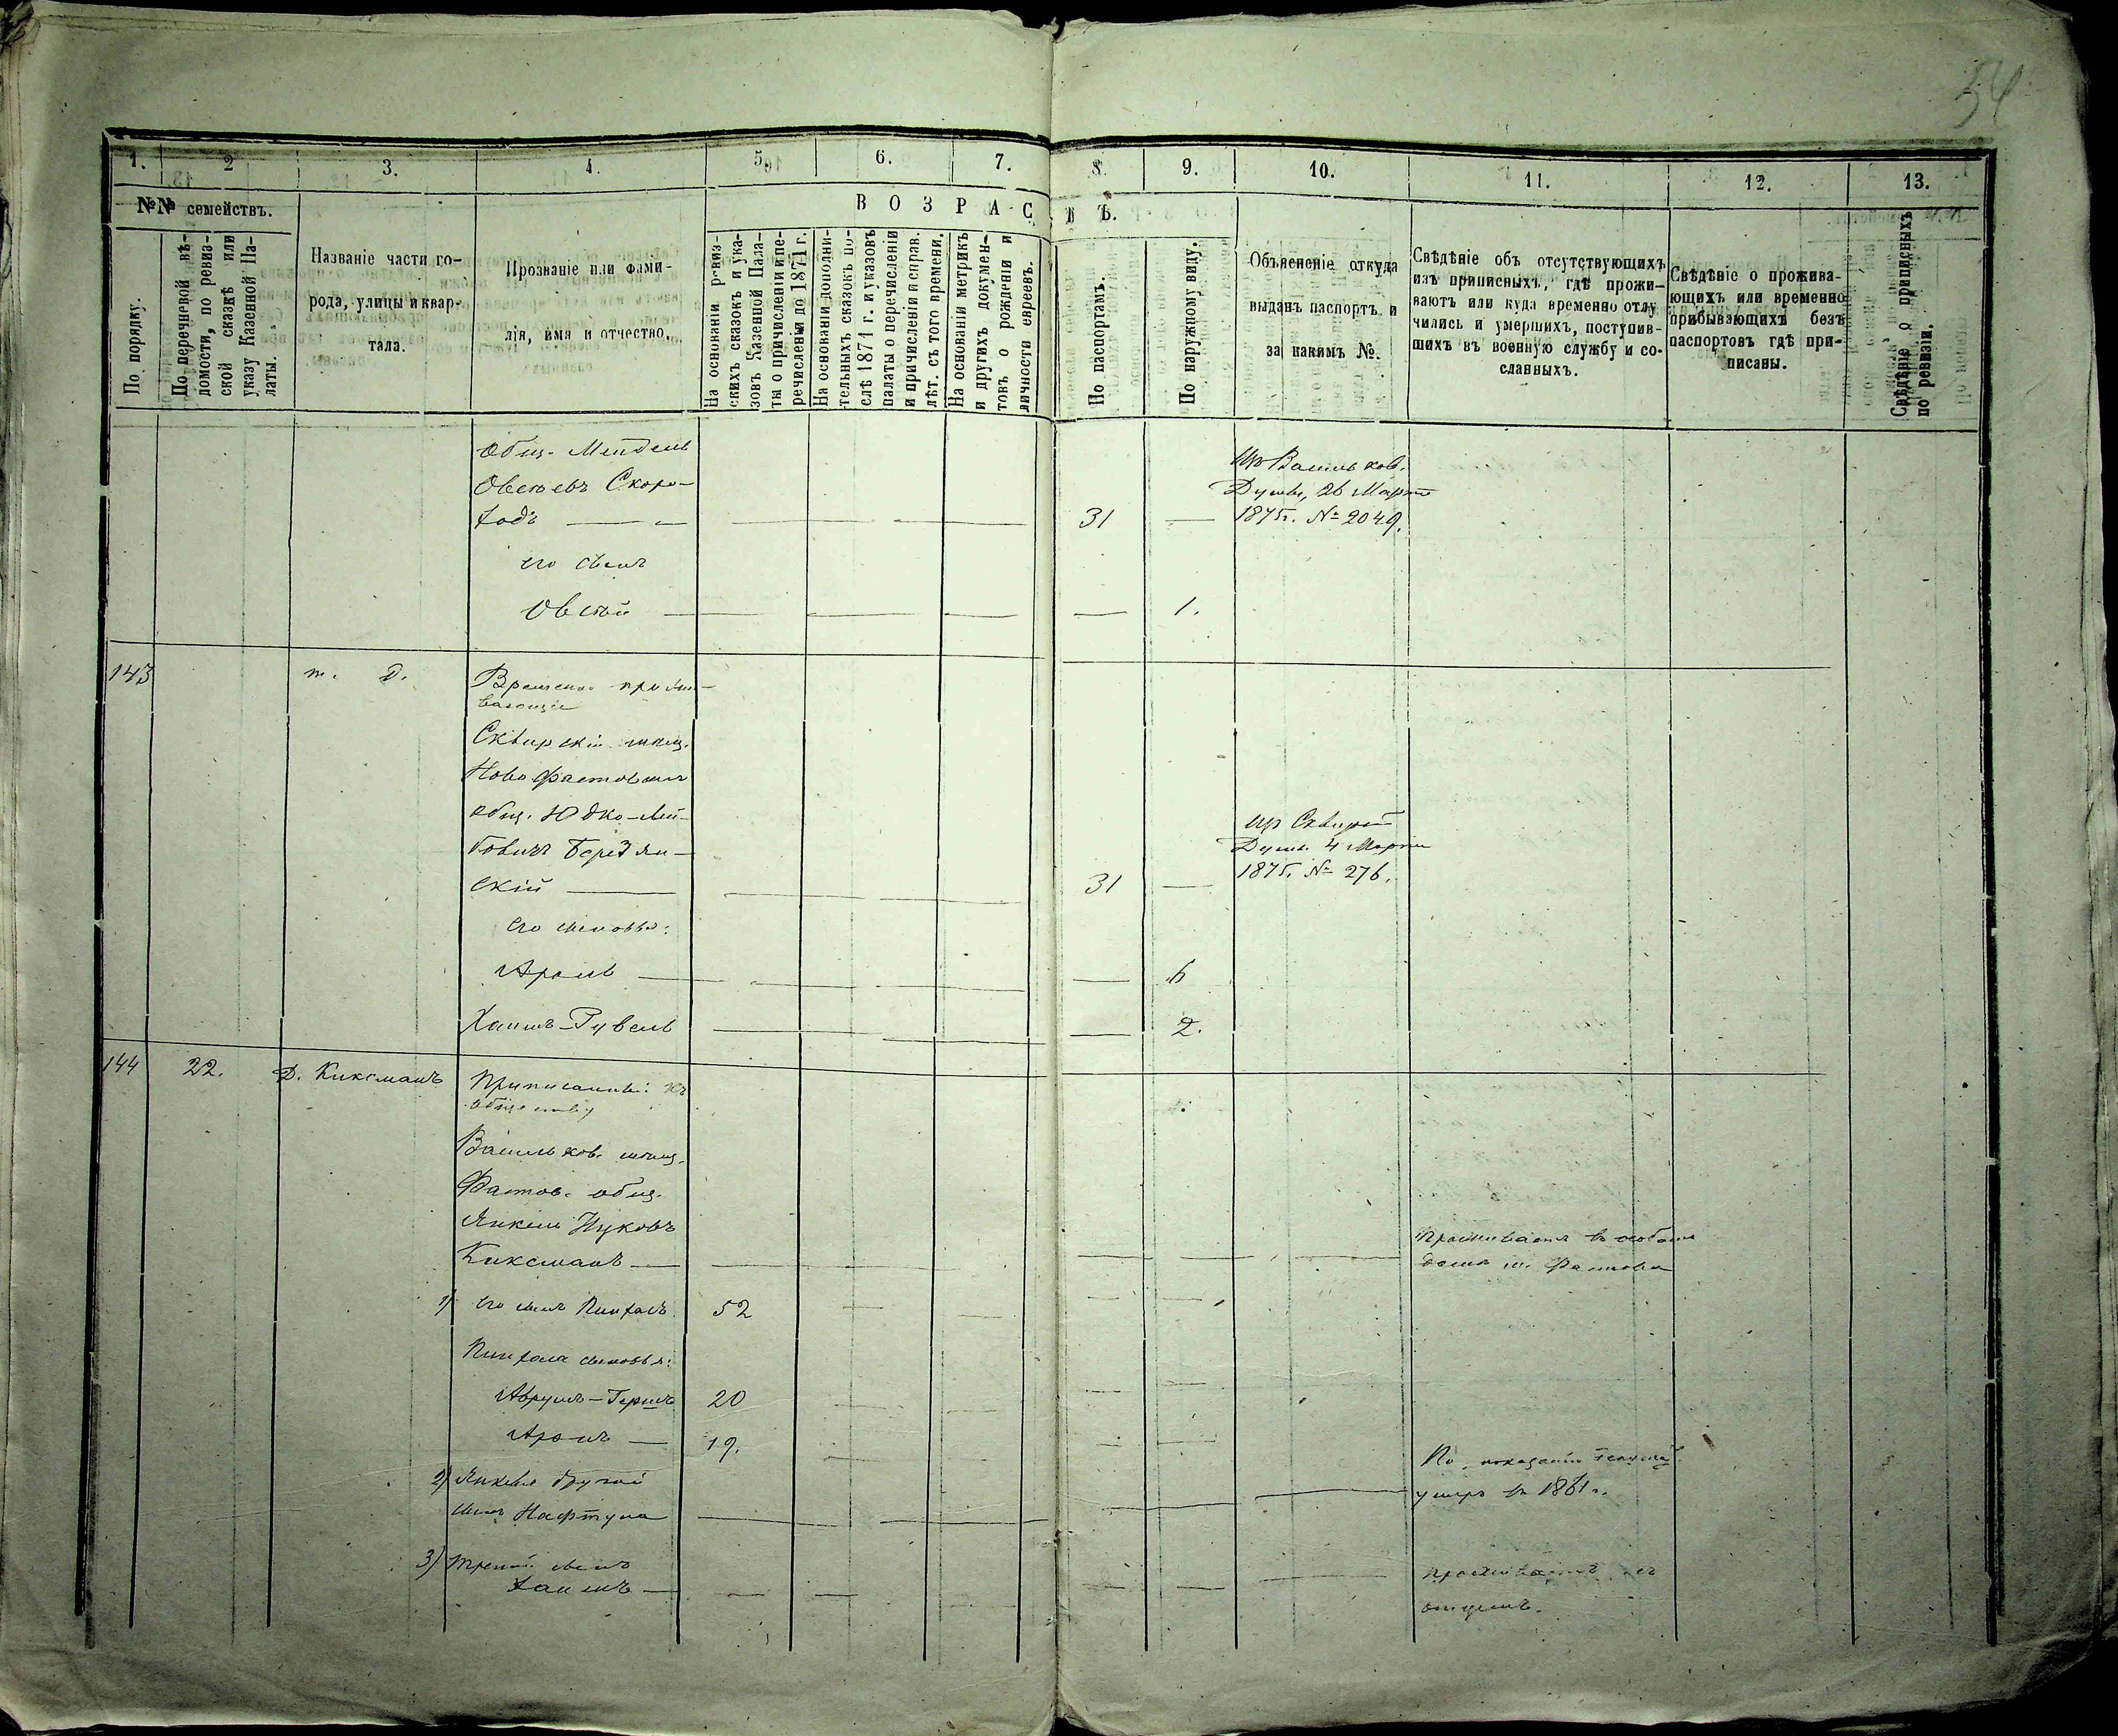 54
1. 2 3. 4. 5. 6. 7. 8. 9. 10. 11. 12. 13.
№№ семействъ.
По порядку.
По перечневой вѣ-
домости, по ревиз-
ской сказкѣ или
указу Казенной Па-
латы.
Названіе части го-
рода, улицы и квар-
тала.
Прозваніе или фами-
лія, имя и отчество.
ВОЗРАСТЪ.
На основаніи ревиз-
скихъ сказокъ и ука-
зовъ Казенной Пала-
ты о причисленіи и пе-
речисленіи до 1871 г.
На основаніи дополни-
тельныхъ сказокъ по-
слѣ 1871 г. и указовъ
палаты о перечисленіи
и причисленіи и справ.
лѣт. съ того времени.
На основаніи метрикъ
и другихъ докумен-
товъ о рожденіи и
личности евреевъ.
По паспортамъ.
По наружному виду.
Объясненіе откуда
выданъ паспортъ и
за какимъ №.
Свѣдѣніе объ отсутствующихъ
изъ приписныхъ, гдѣ прожи-
ваютъ или куда временно отлу
чились и умершихъ, поступив-
шихъ въ военную службу и со-
сланныхъ.
Свѣдѣніе о прожива-
ющихъ или временно
прибывающихъ безъ
паспортовъ гдѣ при-
писаны.
Свѣдѣніе о приписныхъ
по ревизіи.
общ. Мендель
Овсѣевъ Скоро-
ходъ — 31 —
Из Васильков.
Думы, 26 Марта
1875г. № 2049.
его сынъ
Овсѣй — 1.
143 т. д. Временно прожи-
вающіе
Сквирскій мѣщ.
Новофастовскаго
общ. Юдко-Лей-
бовичъ Березян-
скій — 31 —
из Сквирской
Думы 4 Марта
1875г. № 276.
его сыновья:
Аронъ — 6
Хаимъ-Рувель 2.
144 22. Д. Киксманъ Приписанный къ
обществу
Васильков. мѣщ.
Фастов. общ.
Янкель Ицковъ
Киксманъ —
Проживаетъ въ особомъ
домѣ м. Фастова
1) его сынъ Пинхасъ 52
Пинхаса сыновья:
Аврумъ-Гершъ 20
Аронъ — 19.
2) Янкеля другой
сынъ Нафтула
По показанію
умеръ въ 1861г.
3) третій сынъ
Хаимъ —
проживаетъ съ
отцемъ.